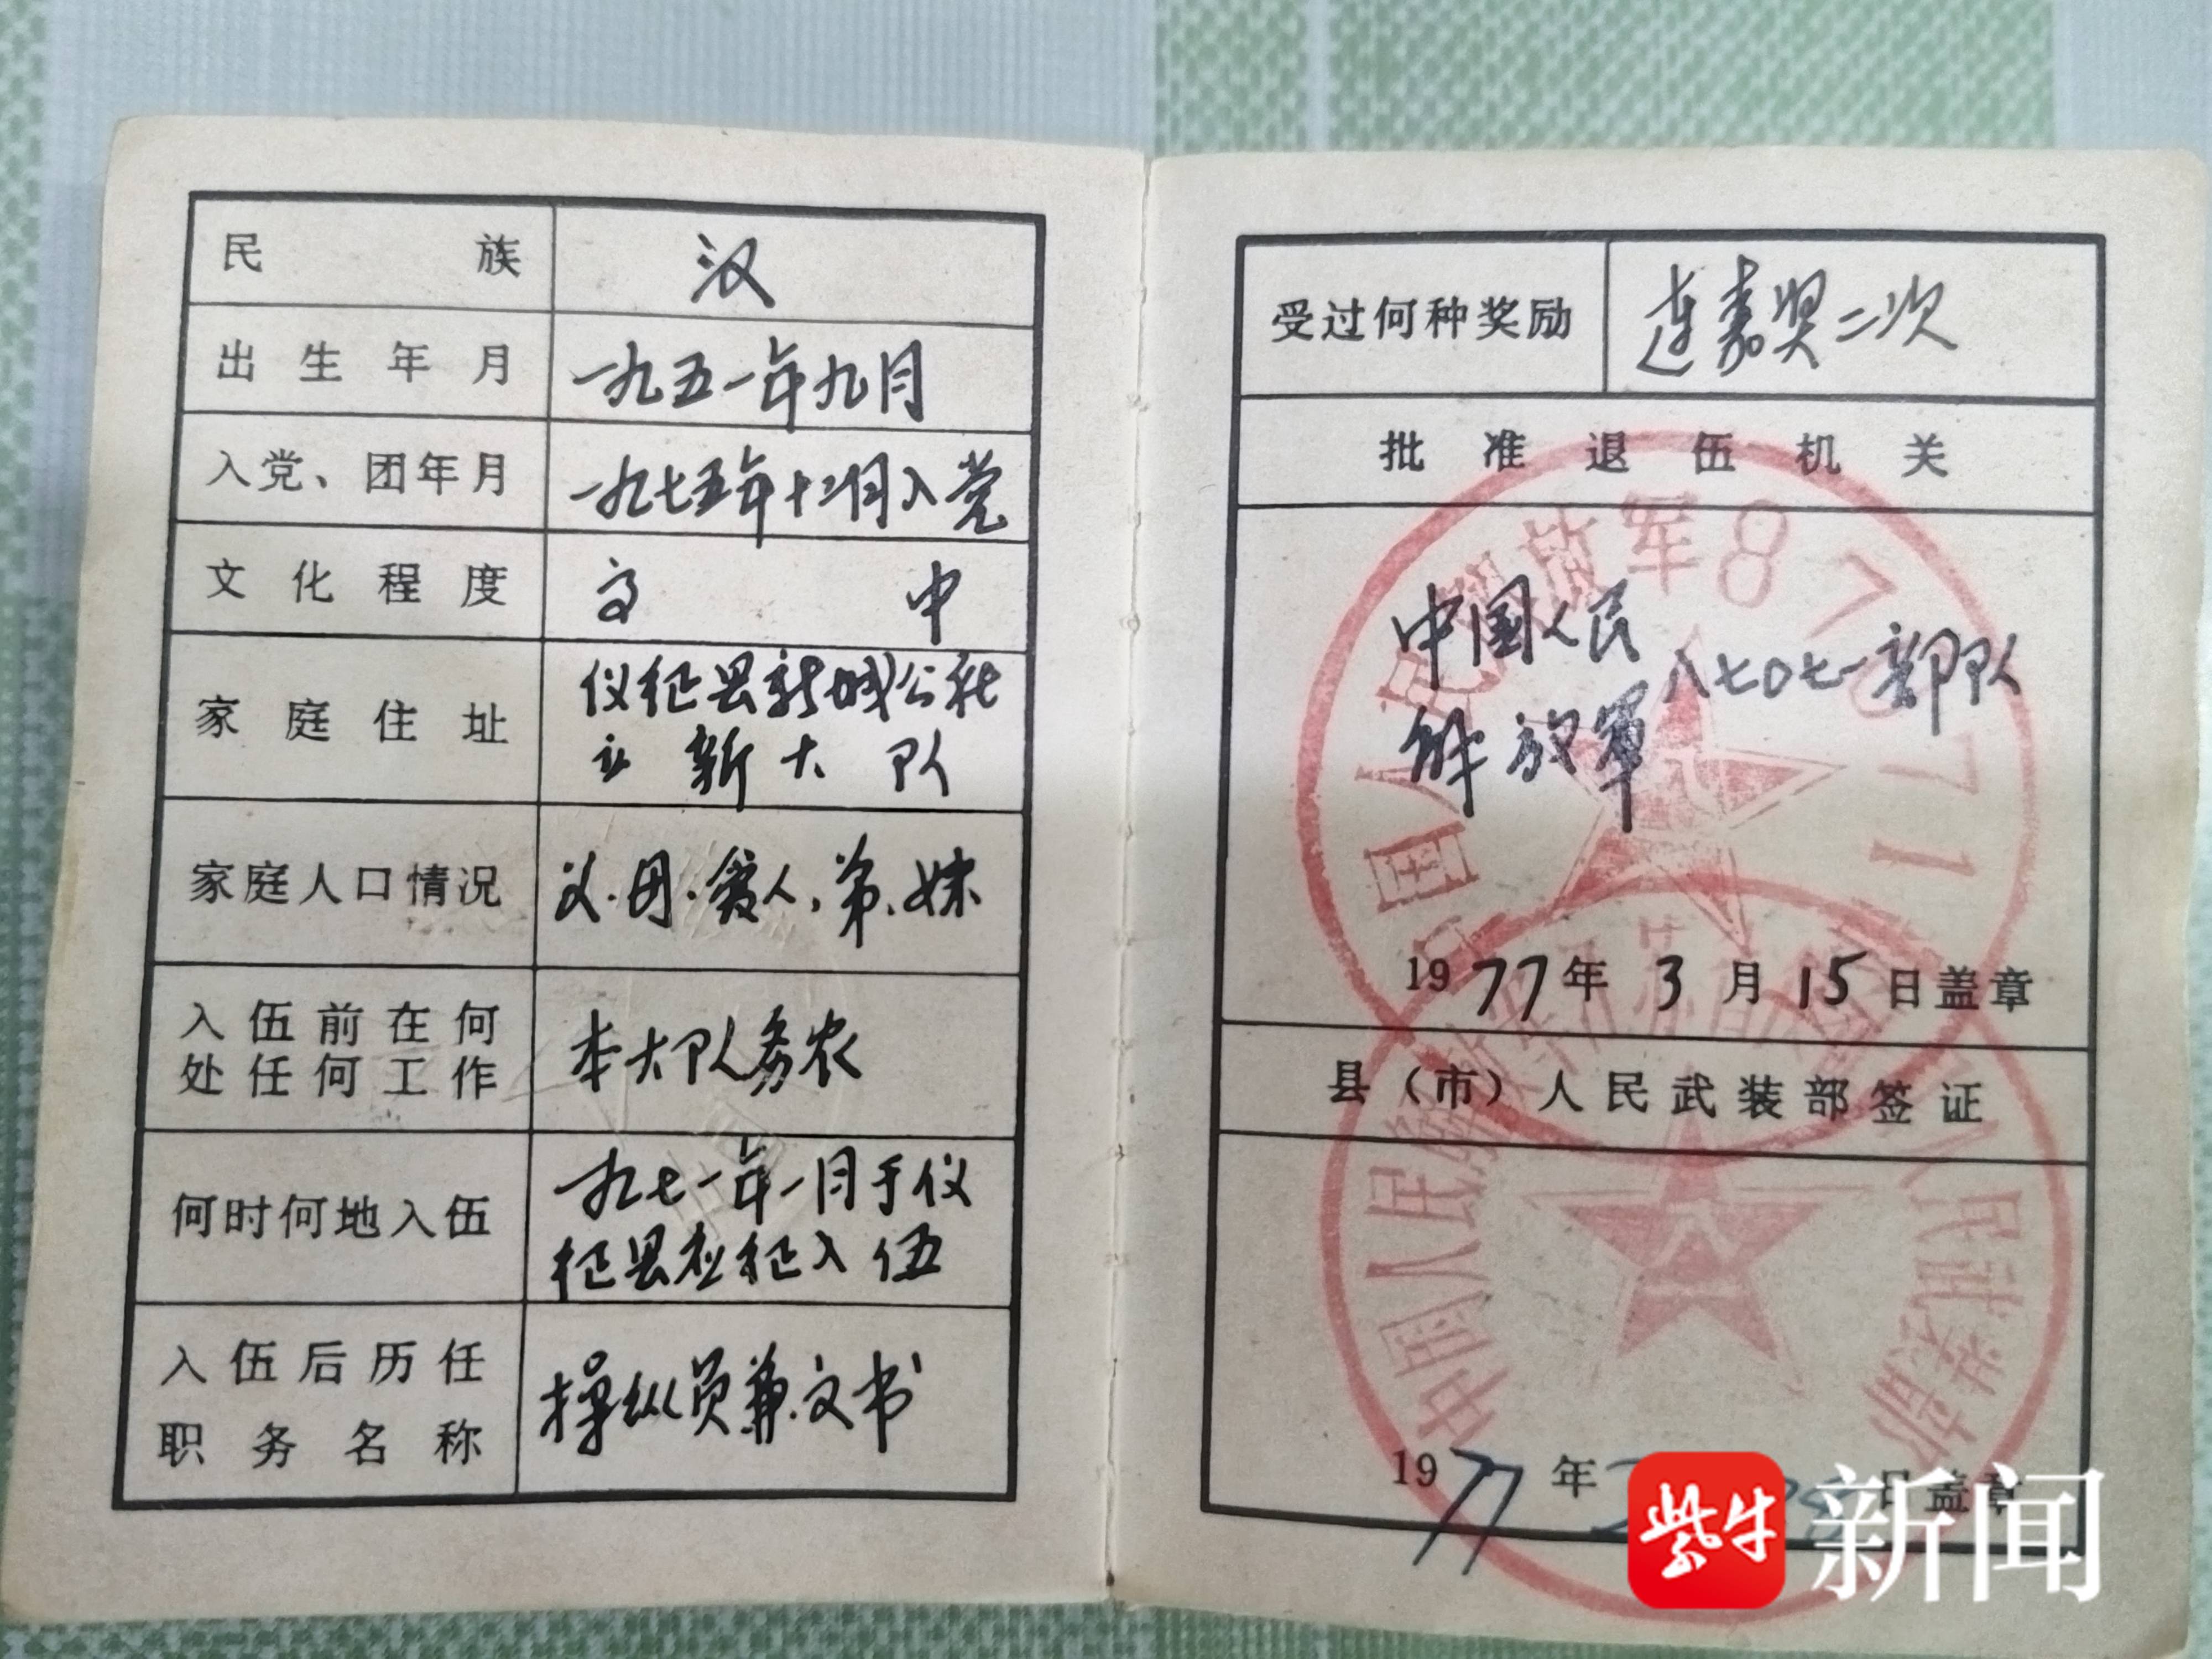 民族 汉
出生年月 一九五一年九月
入党、团年月 一九七五年十二月入党
文化程度 高中
家庭住址 仪征县新城公社
立新大队
家庭人口情况 父.母.爱人,弟.妹
入伍前在何
处任何工作 本大队务农
何时何地入伍 一九七一年一月于仪
征县应征入伍
入伍后历任
职务名称 操纵员兼文书
受过何种奖励 连嘉奖二次
批准退伍机关
中国人民
解放军 八七〇七一部队
中国人民解放军87071部队
1977年3月15日盖章
县(市)人民武装部签证
中国人民解放军 人民武装部
1977年 日盖章
紫牛新闻